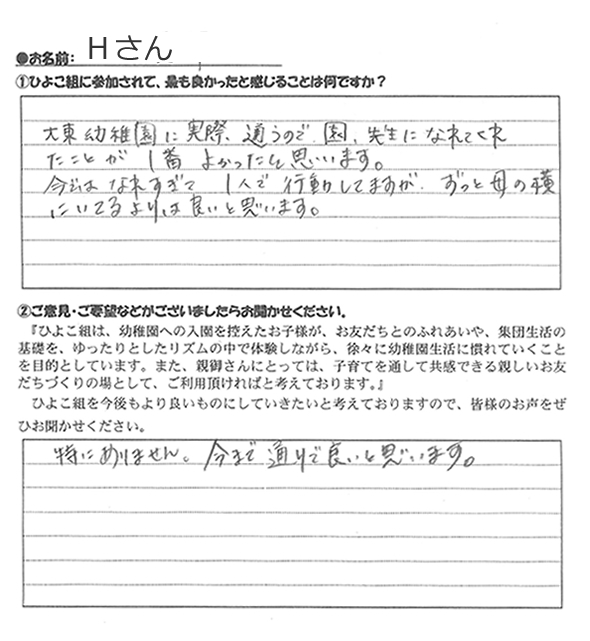 ●お名前: Hさん
①ひよこ組に参加されて、最も良かったと感じることは何ですか？
大東幼稚園に実際、通うので園、先生になれてくれ
たことが1番よかったと思います。
今ではなれすぎて1人で行動してますが、ずっと母の横
にいてるよりは良いと思います。
②ご意見・ご要望などがございましたらお聞かせください。
『ひよこ組は、幼稚園への入園を控えたお子様が、お友だちとのふれあいや、集団生活の
基礎を、ゆったりとしたリズムの中で体験しながら、徐々に幼稚園生活に慣れていくこと
を目的としています。また、親御さんにとっては、子育てを通して共感できる親しいお友
だちづくりの場として、ご利用頂ければと考えております。』
ひよこ組を今後もより良いものにしていきたいと考えておりますので、皆様のお声をぜ
ひお聞かせください。
特にありません。今まで通りで良いと思います。